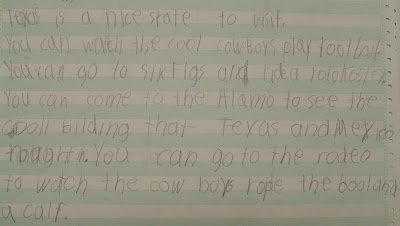 Texas is a nice state to visit.
You can watch the cool cowboys play football.
You can go to six flgs and rid a
You can come to the Alamo to see the
cooll bilding that Texas and Mexico
fought n. You can go to the rodeo
to watch the cow boys rope the bool and
a calf.